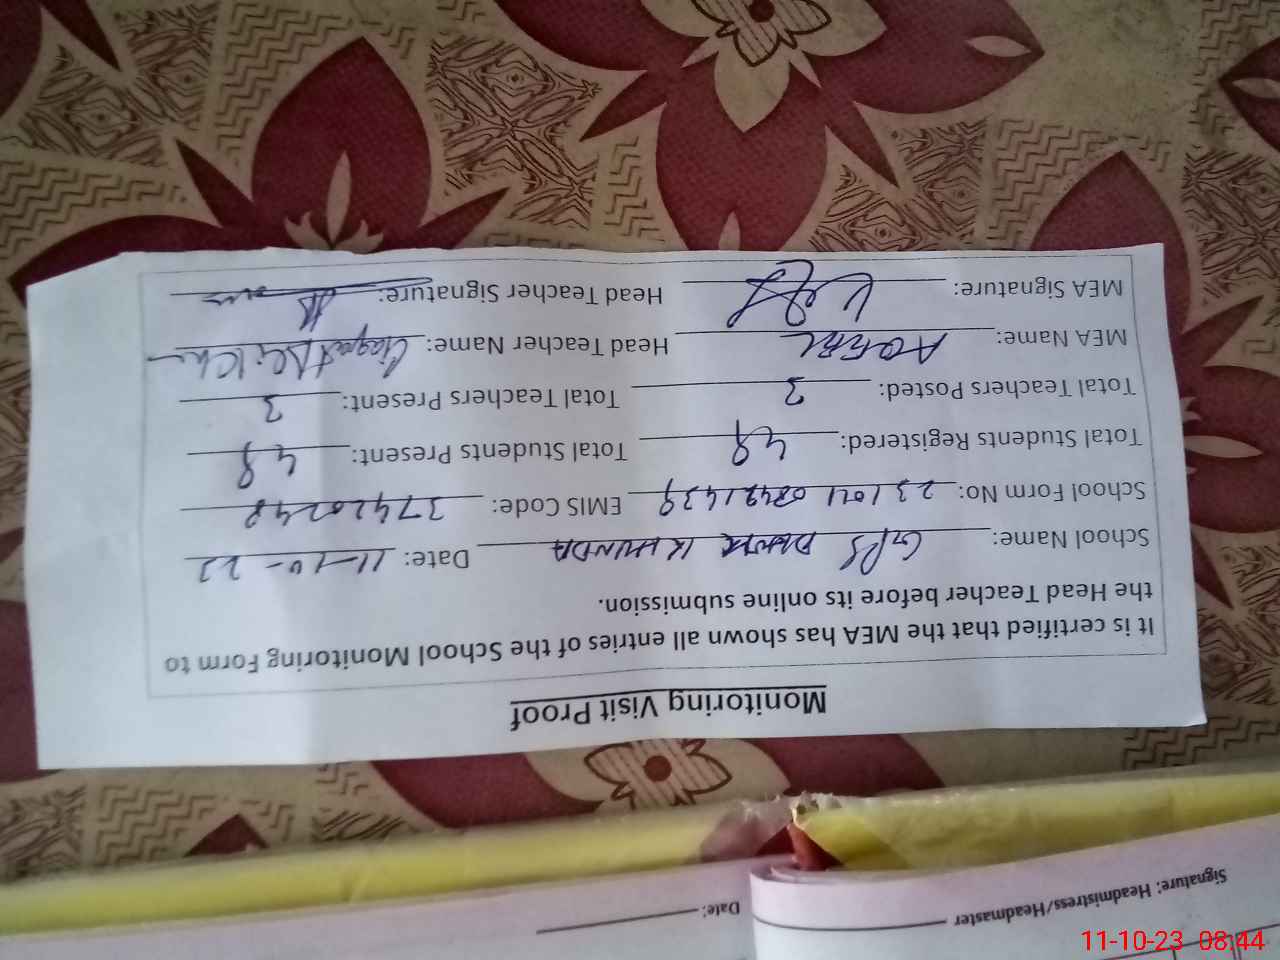 Monitoring Visit Proof
It is certified that the MEA has shown all entries of the School Monitoring Form to
the Head Teacher before its online submission.
School Name: GPS KHUNDA Date: 11-10-23
School Form No: EMIS Code: 37420248
Total Students Registered: 49 Total Students Present: 48
Total Teachers Posted: 3 Total Teachers Present: 3
MEA Name: Head Teacher Name: Liaqat Ali Khan
MEA Signature: Head Teacher Signature:
Signature: Headmistress/Headmaster Date:
11-10-23 08:44